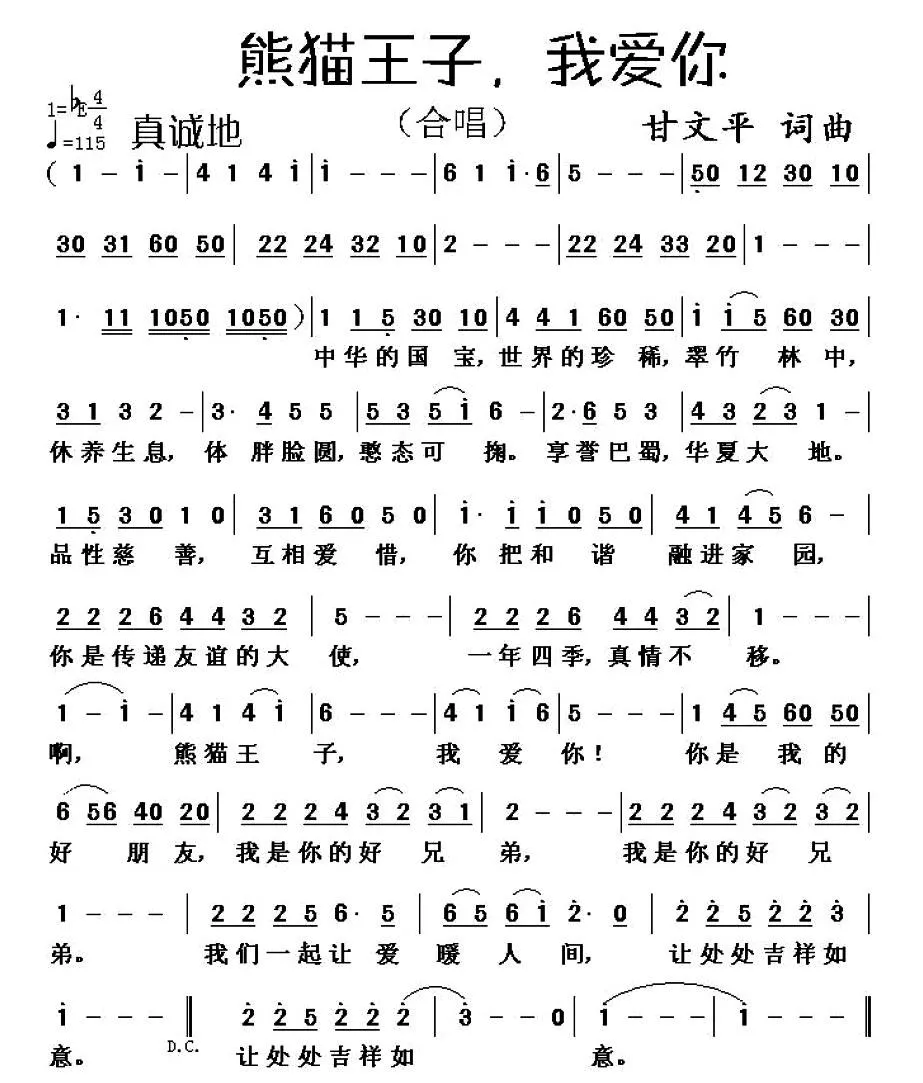 熊猫王子，我爱你
1=♭E 4/4
（合唱）
甘文平 词曲
♩=115 真诚地
( 1 - i - | 4 1 4 i | i - - - | 6 1 i· 6 | 5 - - - | 50 12 30 10 |
30 31 60 50 | 22 24 32 10 | 2 - - - | 22 24 33 20 | 1 - - - |
1· 11 1050 1050 ) | 1 1 5 30 10 | 4 4 1 60 50 | i i 5 60 30 |
中华的国宝，世界的珍稀，翠竹林中，
3 1 3 2 - | 3· 4 5 5 | 5 3 5 i 6 - | 2· 6 5 3 | 4 3 2 3 1 - |
休养生息，体胖脸圆，憨态可掬。享誉巴蜀，华夏大地。
1 5 3 0 1 0 | 3 1 6 0 5 0 | i· i i 0 5 0 | 4 1 4 5 6 - |
品性慈善，互相爱惜，你把和谐融进家园，
2 2 2 6 4 4 3 2 | 5 - - - | 2 2 2 6 4 4 3 2 | 1 - - - |
你是传递友谊的大使，一年四季，真情不移。
1 - i - | 4 1 4 i | 6 - - - | 4 1 i 6 | 5 - - - | 1 4 5 60 50 |
啊，熊猫王子，我爱你！你是我的
6 56 40 20 | 2 2 2 4 3 2 3 1 | 2 - - - | 2 2 2 4 3 2 3 2 |
好朋友，我是你的好兄弟，我是你的好兄
1 - - - | 2 2 2 5 6· 5 | 6 5 6 i 2· 0 | 2 2 5 2 2 3 |
弟。我们一起让爱暖人间，让处处吉祥如
i - - - ‖ 2 2 5 2 2 2 | 3 - - 0 | i - - - | i - - - ‖
意。 D.C. 让处处吉祥如意。